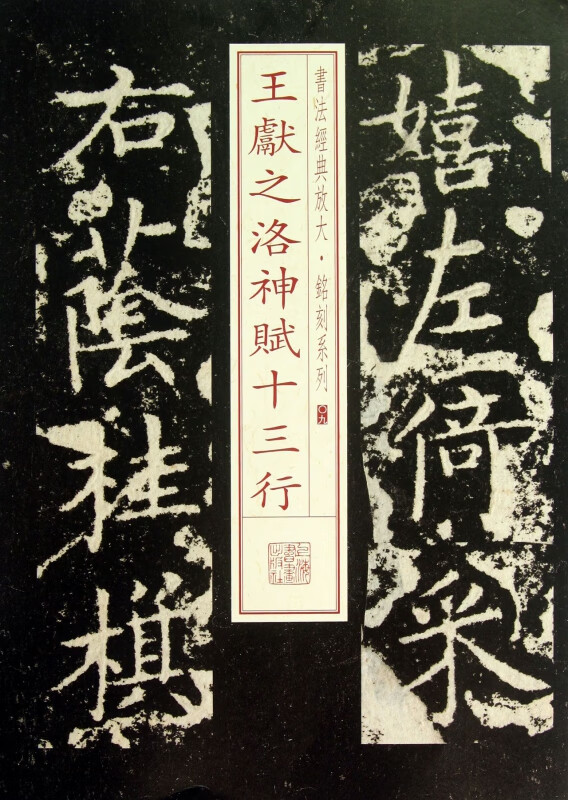 嬉左倚采
書法經典放大・銘刻系列
〇九
王獻之洛神賦十三行
上海書畫出版社
右蔭桂旗